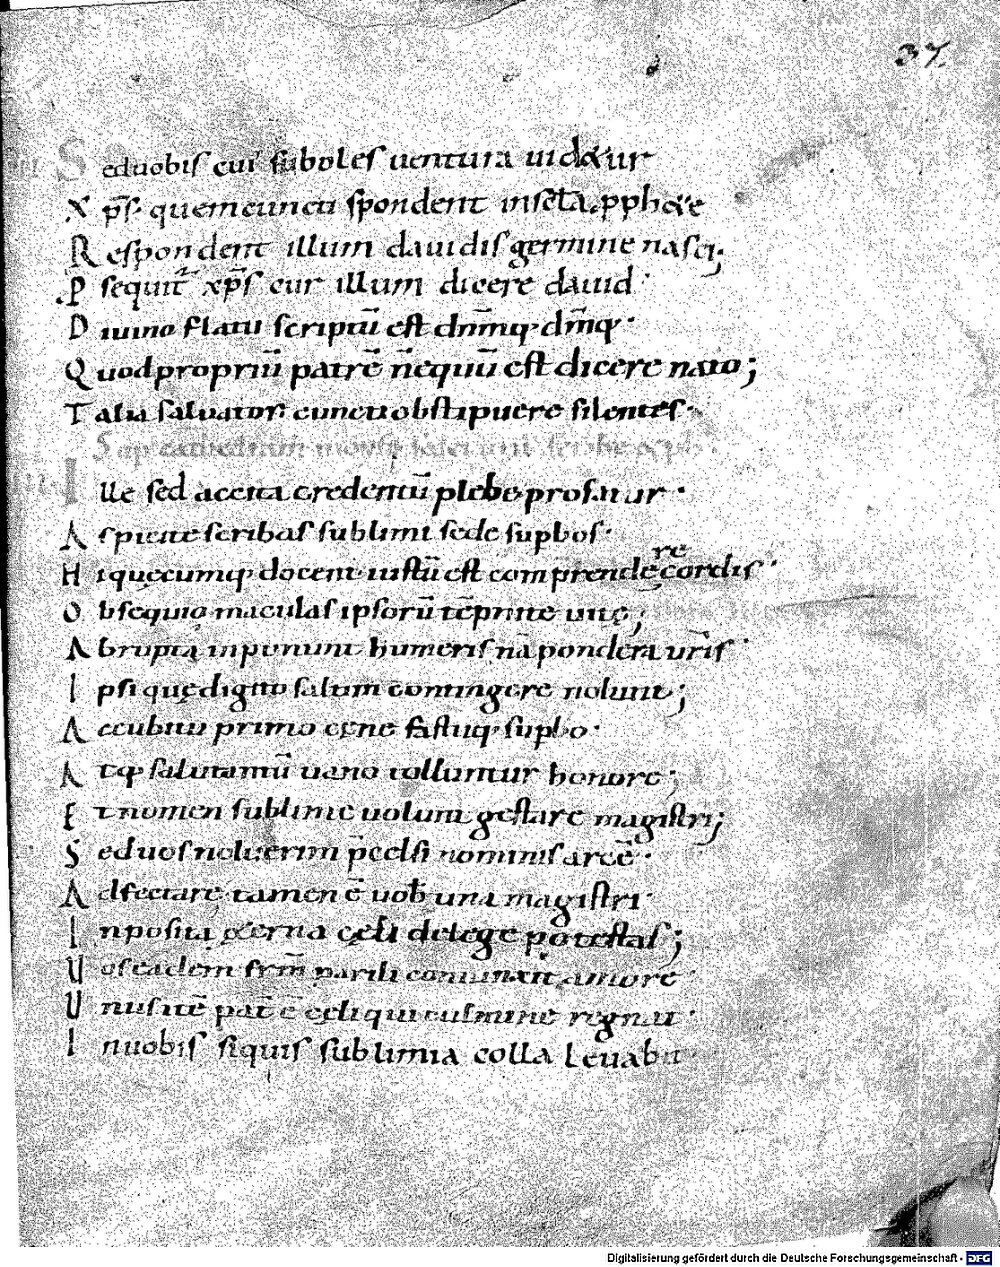 37.
S eduobis cui' suboles uentura uidetur
X p̄s quem cuncti spondent in sc̄ta pphete
R espondent illum dauidis germine nasci;
P sequit̄ xp̄s cur illum dicere dauid·
D iuino flatu scriptū est dn̄mq dn̄q·
Q uod propriū patrē n̄ equū est dicere nato;
T alia saluatori cuncti obstipuere silentes·
Sup cathedram
I lle sed accita credentū plebe profatur·
A spicite scribas sublimi sede supbos·
H i quęcumq docent iustū est comprendere cordis·
O bsequio maculas ipsorū tēpnite uitę;
A brupta inponunt humeris nā pondera ur̄is·
I psi quę digito saltim contingere nolunt;
A ccubitu primo cęnę fastuq supbo·
A tq salutantū uano tolluntur honore;
E t nomen sublime uolunt gestare magistri;
S ed uos nolite p̄celsi nominis arcē·
A dfectare tamen ē uob una magistri·
I nposita ęterna cęli de lege potestas;
U os eadem frm̄ parili coniunxit amore·
U nus itē pat̄ ē cęli qui culmine regnat·
I nuobis siquis sublimia colla leuabit·
Digitalisierung gefördert durch die Deutsche Forschungsgemeinschaft - DFG